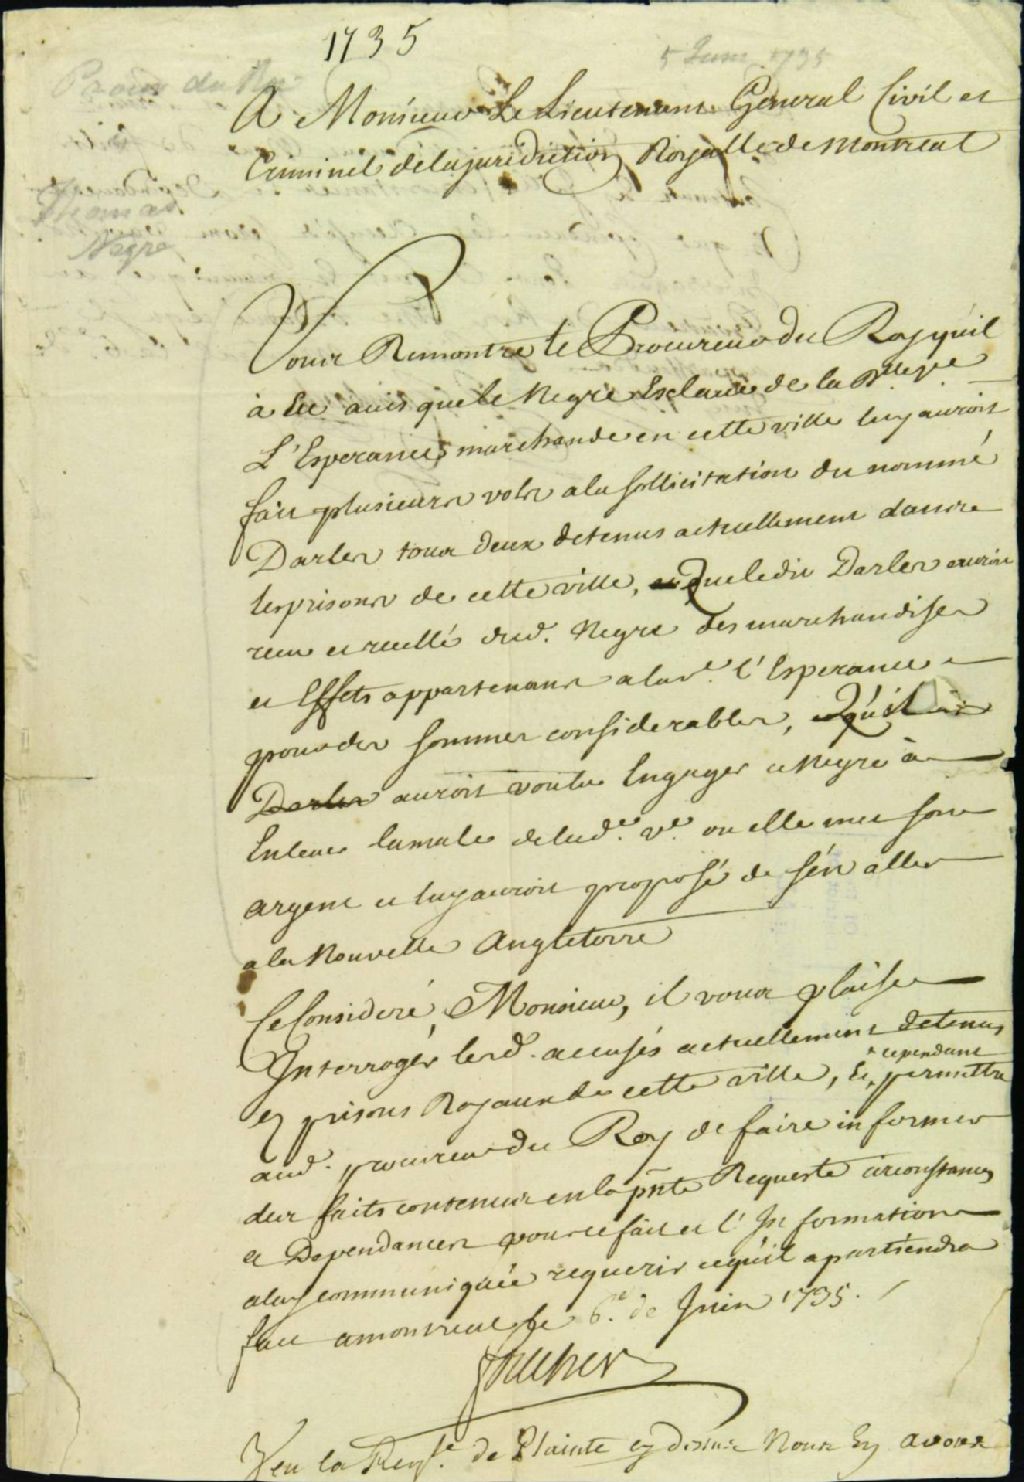 1735
5 Juin 1735
Proces du Roy
Thomas
Negre
A Monsieur Le Lieutenant General Civil et
Criminel de la juridiction Royalle de Montreal
Vous Remontre le Procureur du Roy quil
a Eu avis que le Negre Esclave de la
L'Esperance marchande en cette ville luy auroit
fait plusieurs vols a la sollicitation du nommé
Darles tous deux detenus actuellement dans
les prisons de cette ville, Que ledit Darles auroit
receu et recellé dud. Negre des marchandises
et Effets appartenans a la ve. l'Esperance
pour des sommes considerables, Qu'il
Darles auroit voulu Engager ce Negre à
Enlever la malle de lade. ve. ou elle met son
argent et luy auroit proposé de s'en aller
a la Nouvelle Angleterre
Ce Consideré, Monsieur, il vous plaise
Interroger lesd. accusés actuellement detenus
es prisons Royaux de cette ville, Et, cependant permettre
aud. procureur du Roy de faire informer
des faits contenus en la pnte Requeste circonstances
et Dependances pour ce fait et l'Information
a luy communiquée requerir ce qu'il apartiendra
fait a montreal le 6.e de Juin 1735.
foucher
Veu la Reqte. de Plainte cy dessus Nous En avons